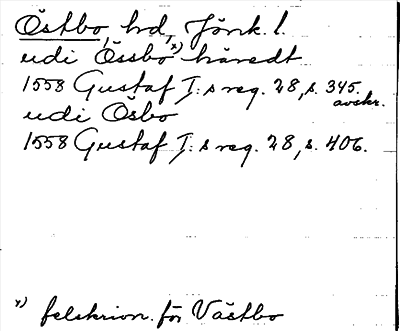 Östbo, hd, Jönk. l.
udi Össbo x) häredt
1558 Gustaf I:s reg. 28, s. 345.
avskr.
udi Ösbo
1558 Gustaf I:s reg. 28, s. 406.
x) felskrivn. för Västbo